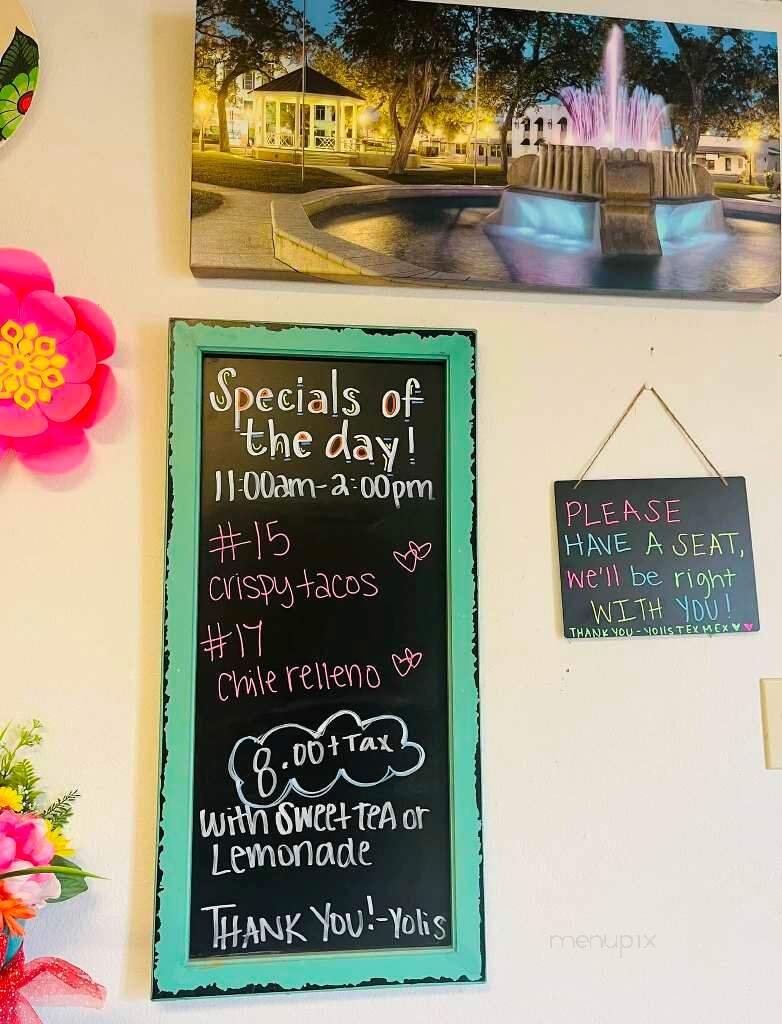 Specials of
the day!
11:00am-2:00pm
#15
crispy tacos
#17
Chile relleno
8.00+Tax
with sweet teA or
Lemonade
THANK YOU!-Yolis
PLEASE
HAVE A SEAT,
we'll be right
WITH YOU!
THANK YOU-YOLIS TEX MEX
menupix